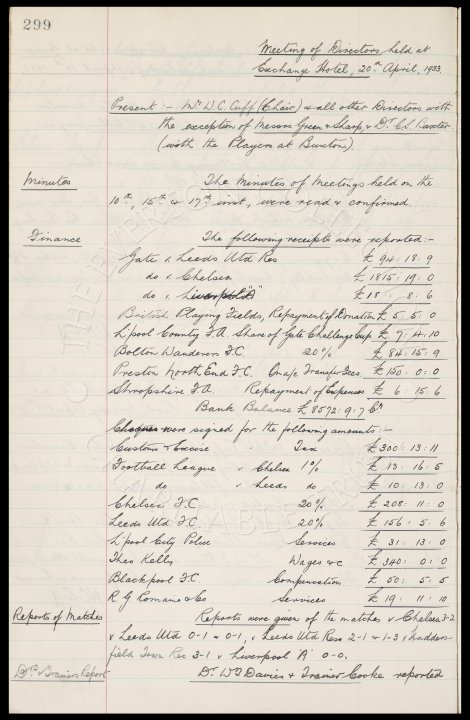 299
Meeting of Directors held at
Exchange Hotel, 20th April, 1933.
Present :- Mr W.C. Cuff (Chair) & all other Directors with
the exception of Messrs Green & Sharp, & Dr C.S. Baxter
(with the Players at Buxton).
Minutes The Minutes of Meetings held on the
10th, 15th & 17th inst, were read & confirmed.
Finance The following receipts were reported :-
Gate v. Leeds Utd Res £ 94 : 18 : 9
do v. Chelsea £ 1815 : 19 : 0
do v. Liverpool "A" £ 18 : 8 : 6
British Playing Fields, Repayment of Donation £ 5 : 5 : 0
L'pool County F.A. Share of Gate Challenge Cup £ 7 : 4 : 10
Bolton Wanderers F.C. 20% £ 84 : 15 : 9
Preston North End F.C. On a/c Transfer Fees £ 150 : 0 : 0
Shropshire F.A. Repayment of Expenses £ 6 : 15 : 6
Bank Balance £ 8572 : 9 : 7 Cr
Cheques were signed for the following amounts :-
Customs & Excise Tax £ 300 : 13 : 11
Football League v Chelsea 1% £ 13 : 16 : 5
do v Leeds do £ 10 : 13 : 0
Chelsea F.C. 20% £ 208 : 11 : 0
Leeds Utd F.C. 20% £ 156 : 5 : 6
L'pool City Police Services £ 31 : 13 : 0
Theo Kelly Wages &c £ 340 : 0 : 0
Blackpool F.C. Compensation £ 50 : 5 : 5
R G Romans & Co Services £ 19 : 11 : 10
Reports of Matches Reports were given of the matches v Chelsea 3-2
v Leeds Utd 0-1 & 0-1, v Leeds Utd Res 2-1 & 1-3 v Hudders-
field Town Res 3-1 v Liverpool 'A' 0-0.
Dr's & Trainers Report Dr. W.J. Davies & Trainer Cooke reported